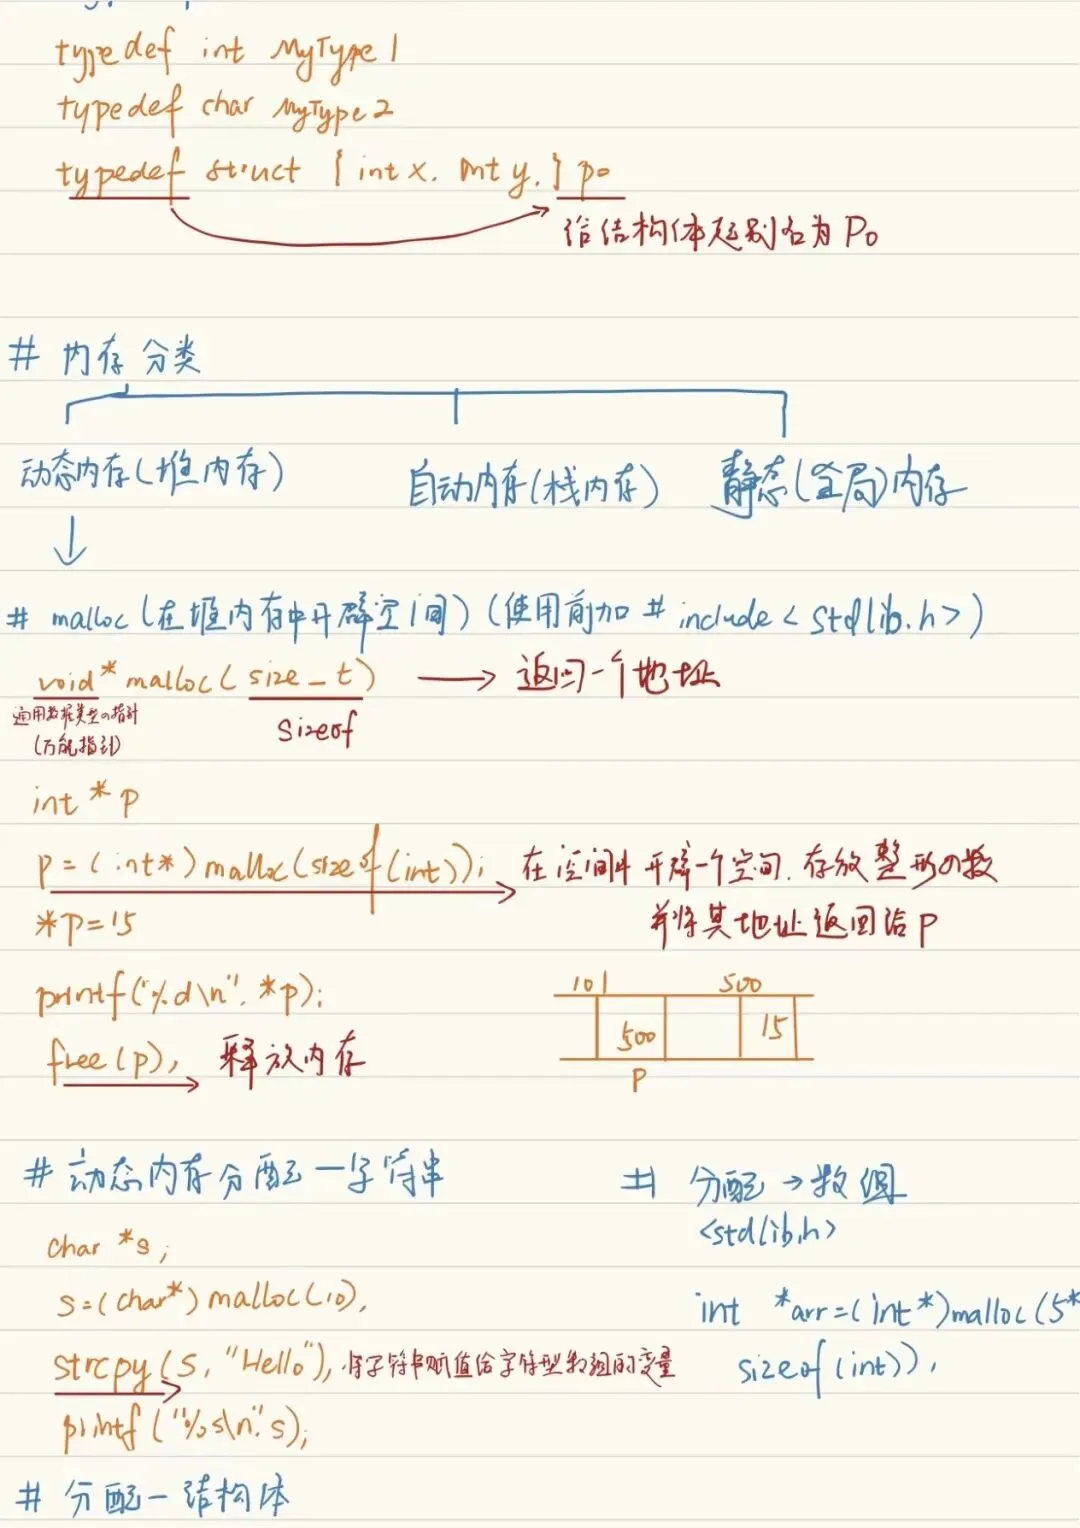 typedef int MyType1
typedef char MyType2
typedef struct { int x. int y. } po
给结构体起别名为 Po
# 内存分类
动态内存(堆内存)
自动内存(栈内存)
静态(全局)内存
# malloc (在堆内存中开辟空间) (使用前加 # include < stdlib.h >)
void* malloc( size_t) → 返回一个地址
通用数据类型の指针
(万能指针)
sizeof
int * p
p = (int*) malloc(sizeof(int)); 在空间中开辟一个空间. 存放整形の数
并将其地址返回给 p
*p=15
printf("%d\n". *p);
free(p), 释放内存
101 500
500 15
p
# 动态内存分配一字符串
char *s;
s=(char*) malloc(10),
strcpy(s, "Hello"), 将字符串赋值给字符型数组的变量
printf ("%s\n". s);
# 分配→数组
<stdlib.h>
int *arr=(int*)malloc(5*
sizeof(int)),
# 分配一结构体